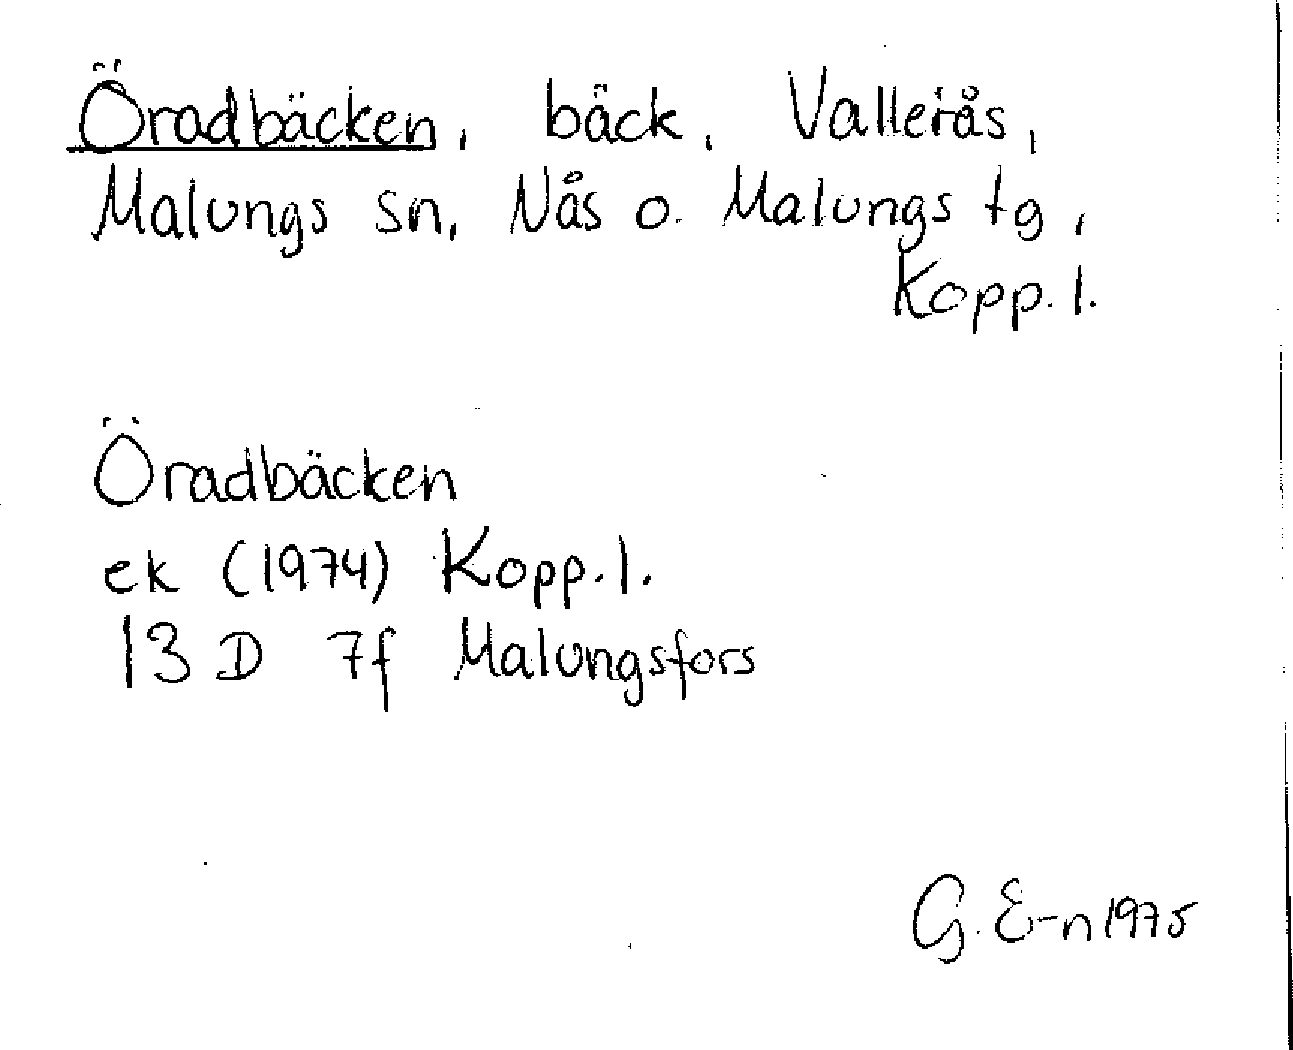 Öradbäcken, bäck, Vallerås,
Malungs sn, Nås o. Malungs tg,
Kopp. l.
Öradbäcken
ek (1974) Kopp. l.
13 D 7f Malungsfors
G. E-n 1975